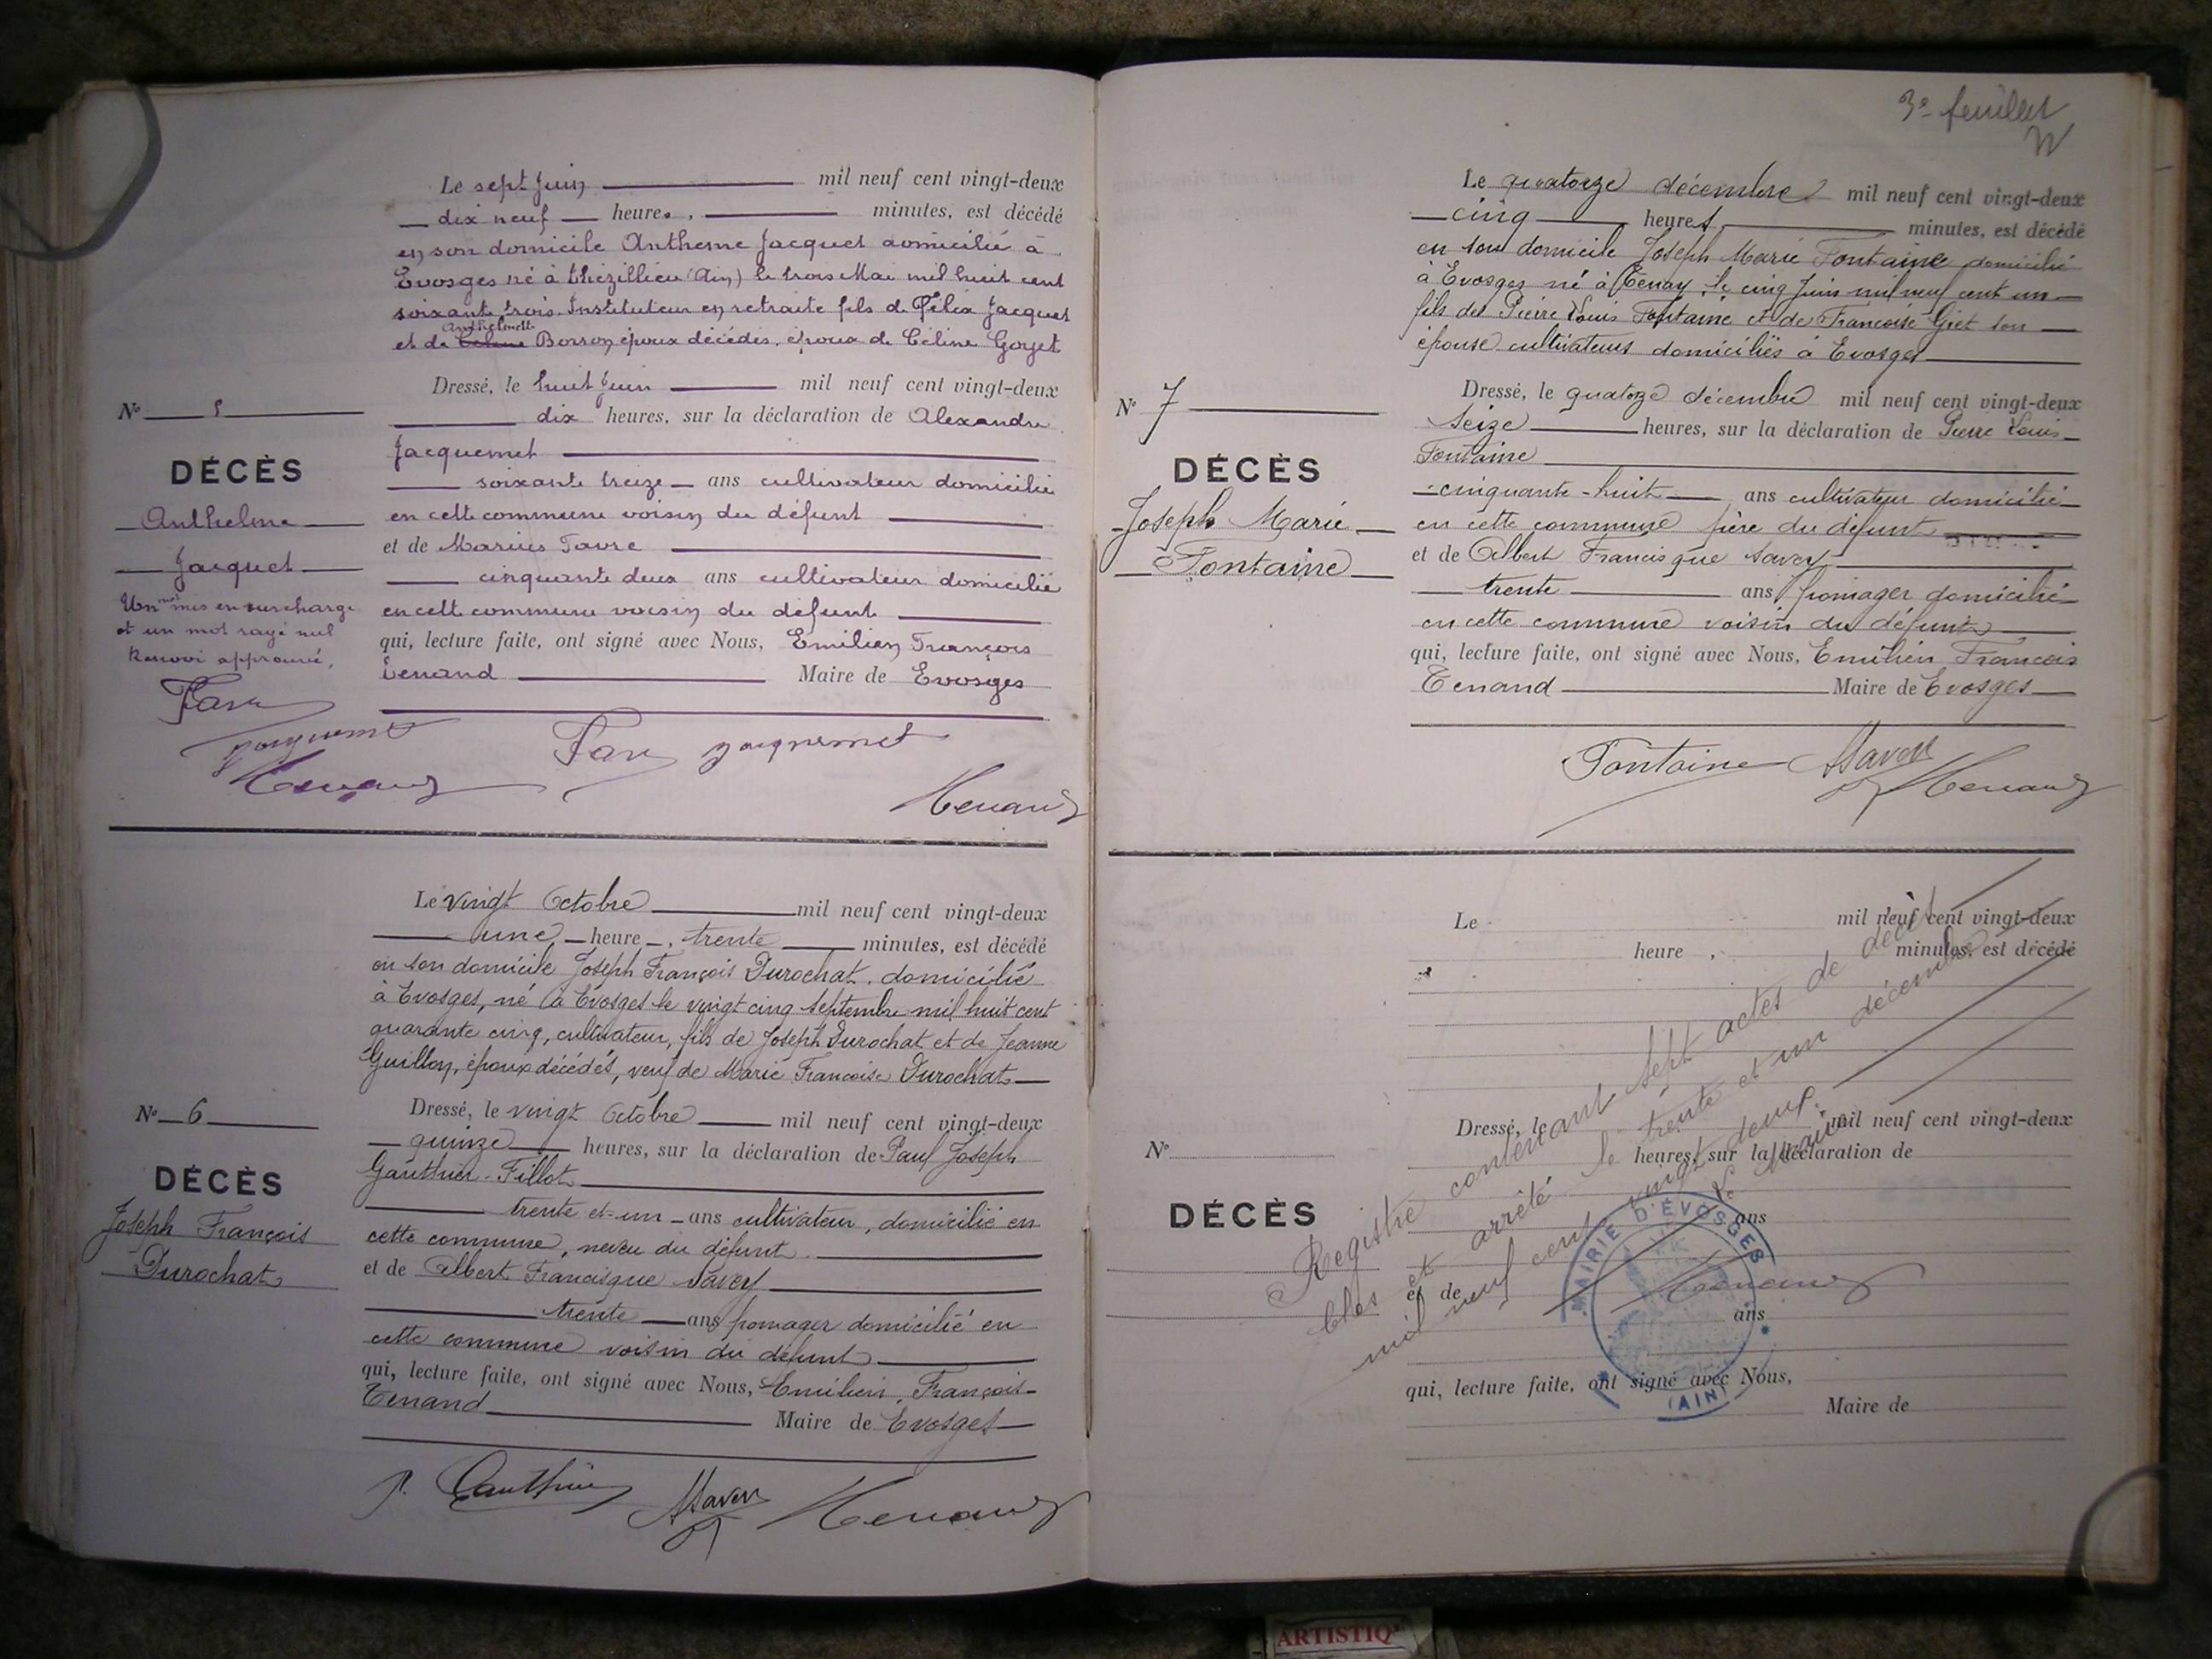 Le sept Juin mil neuf cent vingt-deux
dix neuf heures, minutes, est décédé
en son domicile Anthelme Jacquet domicilié à
Evosges né à Thézillieu (Ain) le trois Mai mil huit cent
soixante trois. Instituteur en retraite fils de Félix Jacquet
Anthelmette
et de Céline Borron époux décédés, époux de Céline Goyet
Dressé, le huit Juin mil neuf cent vingt-deux
dix heures, sur la déclaration de Alexandre
Jacquemet
soixante treize ans cultivateur domicilié
en cette commune voisin du défunt
et de Marius Favre
cinquante deux ans cultivateur domicilié
en cette commune voisin du défunt
qui, lecture faite, ont signé avec Nous, Emilien François
Tenand Maire de Evosges
No 5
DÉCÈS
Anthelme
Jacquet
Un mot mis en surcharge
et un mot rayé nul
Renvoi approuvé,
Favre
Jacquemet
Tenand
Favre Jacquemet
Tenand
Le vingt Octobre mil neuf cent vingt-deux
une heure, trente minutes, est décédé
en son domicile Joseph François Durochat, domicilié
à Evosges, né à Evosges le vingt cinq septembre mil huit cent
quarante cinq, cultivateur, fils de Joseph Durochat et de Jeanne
Guillon, époux décédés, veuf de Marie Françoise Durochat
Dressé, le vingt Octobre mil neuf cent vingt-deux
quinze heures, sur la déclaration de Paul Joseph
Gauthier-Fillot
trente et un ans cultivateur, domicilié en
cette commune, neveu du défunt
et de Albert Francisque Savey
trente ans fromager domicilié en
cette commune voisin du défunt
qui, lecture faite, ont signé avec Nous, Emilien François
Tenand Maire de Evosges
No 6
DÉCÈS
Joseph François
Durochat
P. Gauthier ASavey Tenand
3e feuillet
Le quatorze décembre mil neuf cent vingt-deux
cinq heures, minutes, est décédé
en son domicile Joseph Marie Fontaine domicilié
à Evosges né à Tenay, le cinq Juin mil neuf cent un
fils de Pierre Louis Fontaine et de Françoise Giet son
épouse cultivateurs domiciliés à Evosges
Dressé, le quatorze décembre mil neuf cent vingt-deux
seize heures, sur la déclaration de Pierre Louis
Fontaine
cinquante-huit ans cultivateur domicilié
en cette commune père du défunt
et de Albert Francisque Savey
trente ans fromager domicilié
en cette commune voisin du défunt
qui, lecture faite, ont signé avec Nous, Emilien François
Tenand Maire de Evosges
No 7
DÉCÈS
Joseph Marie
Fontaine
Fontaine ASavey Tenand
Le mil neuf cent vingt-deux
heure, minutes, est décédé
Dressé, le mil neuf cent vingt-deux
heures, sur la déclaration de
ans
et de
ans
qui, lecture faite, ont signé avec Nous,
Maire de
No
DÉCÈS
Registre contenant sept actes de décès
Clos et arrêté le trente et un décembre
mil neuf cent vingt deux.
Le Maire
Tenand
MAIRIE D'ÉVOSGES
(AIN)
ARTISTIQ